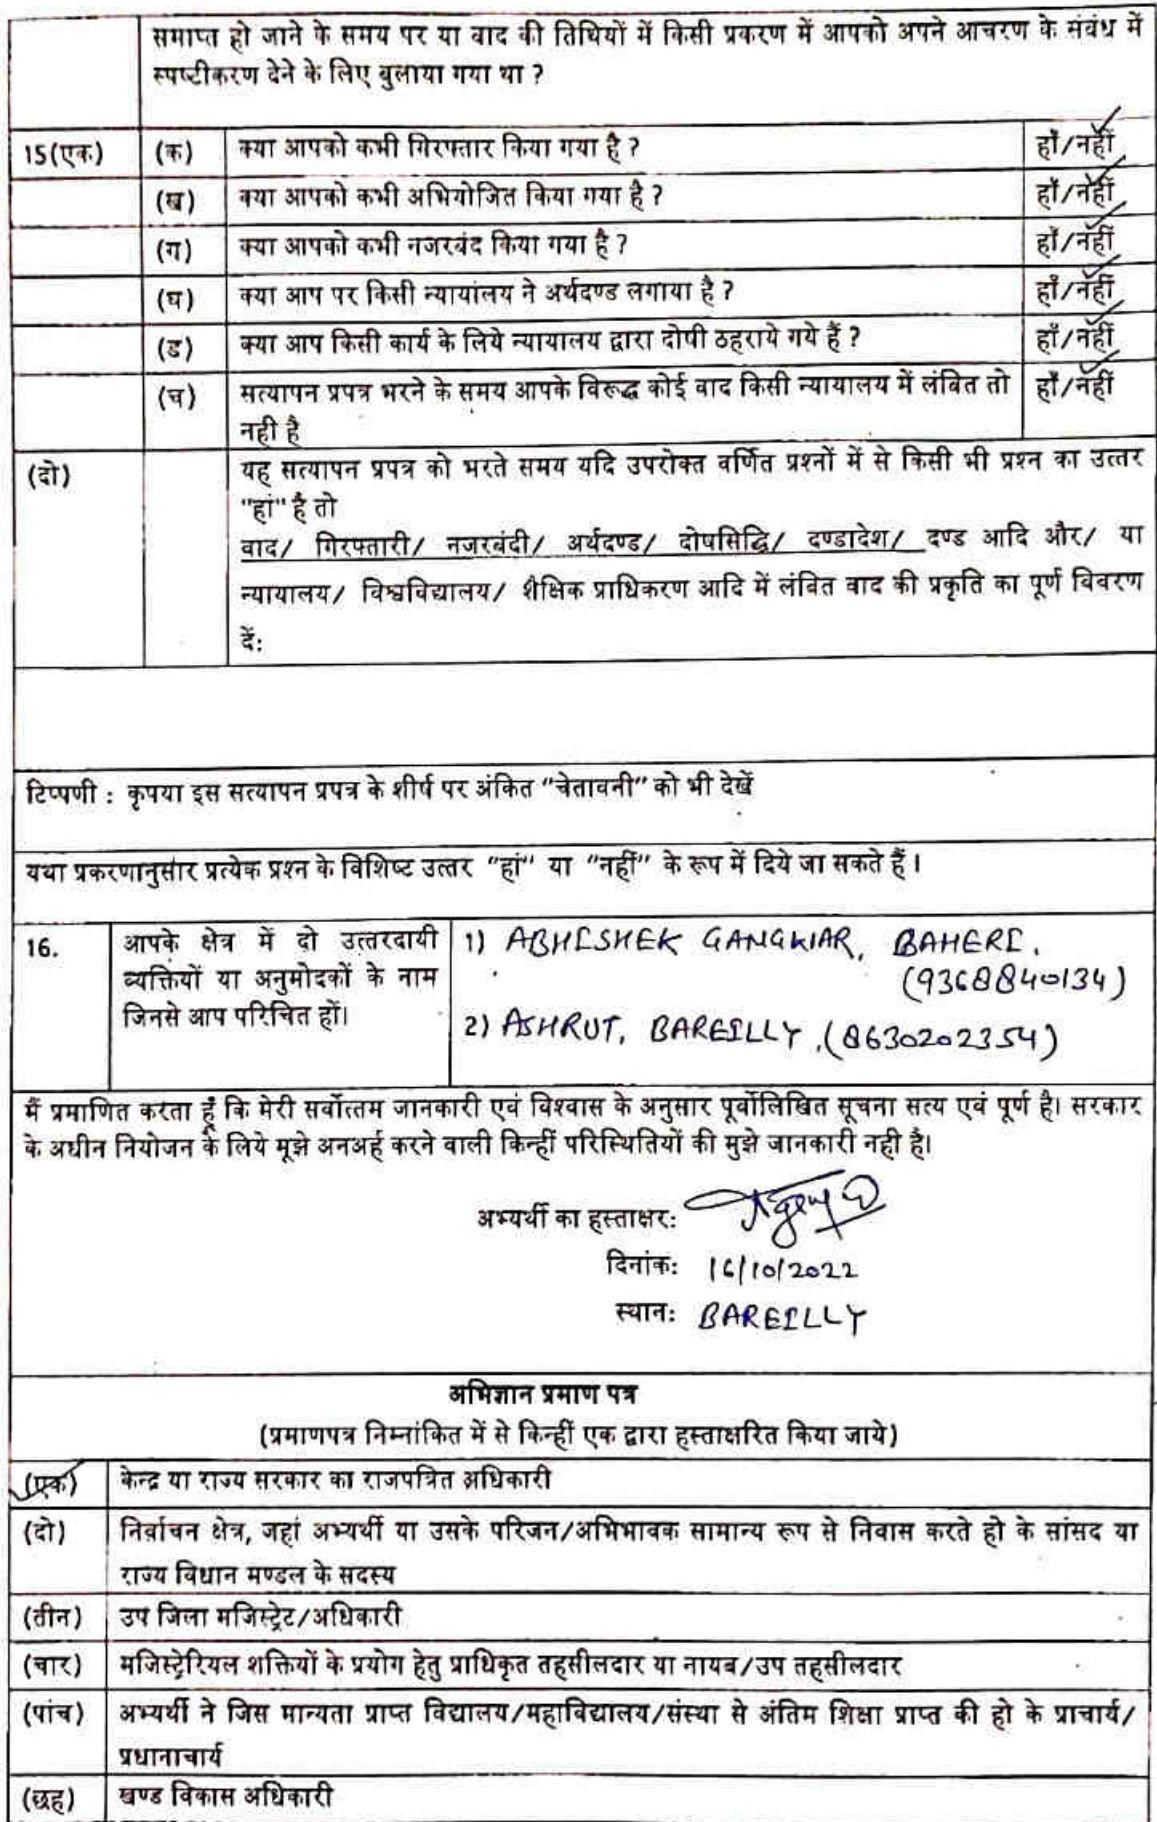 समाप्त हो जाने के समय पर या वाद की तिथियों में किसी प्रकरण में आपको अपने आचरण के संबंध में
स्पष्टीकरण देने के लिए बुलाया गया था ?
15(एक) (क) क्या आपको कभी गिरफ्तार किया गया है ? हाँ/नहीं
(ख) क्या आपको कभी अभियोजित किया गया है ? हाँ/नहीं
(ग) क्या आपको कभी नजरबंद किया गया है ? हाँ/नहीं
(घ) क्या आप पर किसी न्यायांलय ने अर्थदण्ड लगाया है ? हाँ/नहीं
(ड) क्या आप किसी कार्य के लिये न्यायालय द्वारा दोषी ठहराये गये हैं ? हाँ/नहीं
(च) सत्यापन प्रपत्र भरने के समय आपके विरूद्ध कोई वाद किसी न्यायालय में लंबित तो हाँ/नहीं
नही है
(दो) यह सत्यापन प्रपत्र को भरते समय यदि उपरोक्त वर्णित प्रश्नों में से किसी भी प्रश्न का उत्तर
"हां" है तो
वाद/ गिरफ्तारी/ नजरबंदी/ अर्थदण्ड/ दोषसिद्धि/ दण्डादेश/ दण्ड आदि और/ या
न्यायालय/ विश्वविद्यालय/ शैक्षिक प्राधिकरण आदि में लंबित वाद की प्रकृति का पूर्ण विवरण
दें:
टिप्पणी : कृपया इस सत्यापन प्रपत्र के शीर्ष पर अंकित "चेतावनी" को भी देखें
यथा प्रकरणानुसार प्रत्येक प्रश्न के विशिष्ट उत्तर "हां" या "नहीं" के रूप में दिये जा सकते हैं।
16. आपके क्षेत्र में दो उत्तरदायी
व्यक्तियों या अनुमोदकों के नाम
जिनसे आप परिचित हों।
1) ABHISHEK GANGWAR, BAHERI.
(9368840134)
2) ASHRUT, BAREILLY, (8630202354)
मैं प्रमाणित करता हूँ कि मेरी सर्वोत्तम जानकारी एवं विश्वास के अनुसार पूर्वोलिखित सूचना सत्य एवं पूर्ण है। सरकार
के अधीन नियोजन के लिये मूझे अनअर्ह करने वाली किन्हीं परिस्थितियों की मुझे जानकारी नही है।
अभ्यर्थी का हस्ताक्षर:
दिनांक: 16/10/2022
स्थान: BAREILLY
अभिज्ञान प्रमाण पत्र
(प्रमाणपत्र निम्नांकित में से किन्हीं एक द्वारा हस्ताक्षरित किया जाये)
(एक) केन्द्र या राज्य सरकार का राजपत्रित अधिकारी
(दो) निर्वाचन क्षेत्र, जहां अभ्यर्थी या उसके परिजन/अभिभावक सामान्य रूप से निवास करते हो के सांसद या
राज्य विधान मण्डल के सदस्य
(तीन) उप जिला मजिस्ट्रेट/अधिकारी
(चार) मजिस्ट्रेरियल शक्तियों के प्रयोग हेतु प्राधिकृत तहसीलदार या नायब/उप तहसीलदार
(पांच) अभ्यर्थी ने जिस मान्यता प्राप्त विद्यालय/महाविद्यालय/संस्था से अंतिम शिक्षा प्राप्त की हो के प्राचार्य/
प्रधानाचार्य
(छह) खण्ड विकास अधिकारी